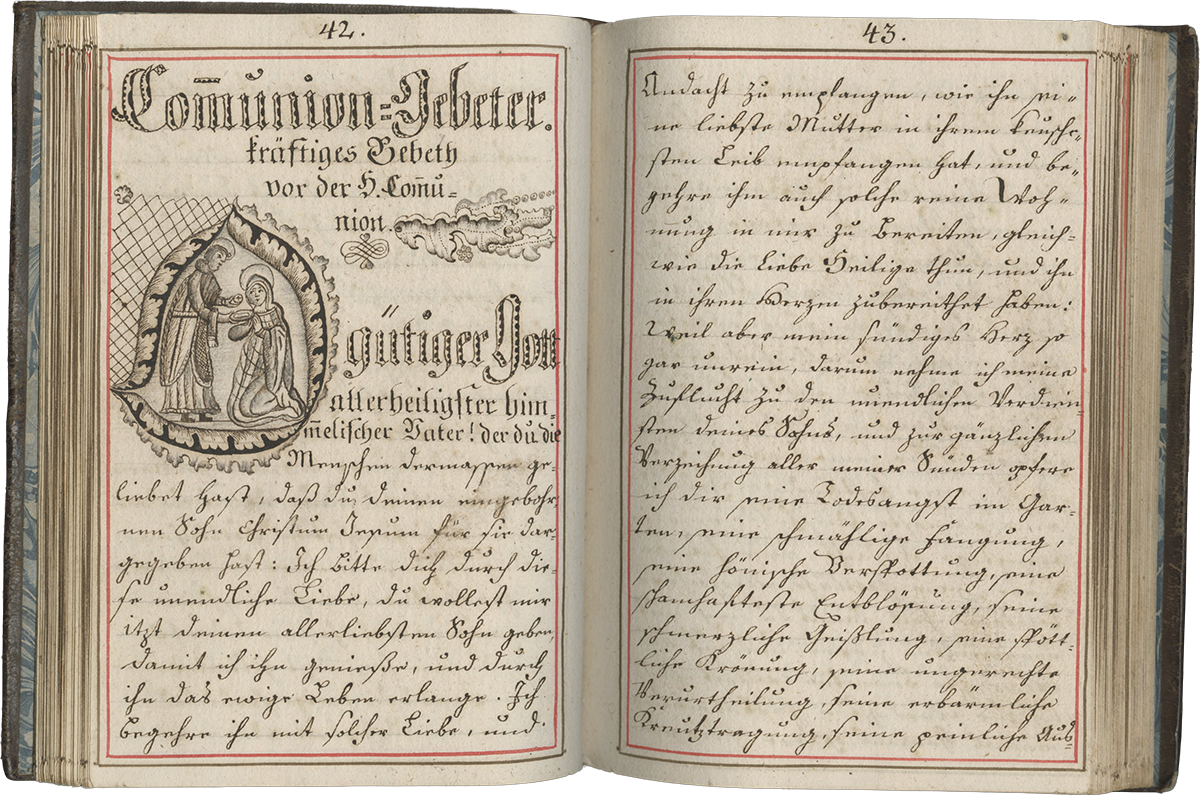 42.
Com̅union=Gebeter.
kräftiges Gebeth
vor der H. Com̅u=
nion.
O gütiger Gott
allerheiligster him=
m̅elischer Vater! der du die
Menschen dermassen ge=
liebet hast, daß du deinen eingebohr
nen Sohn Christum Jesum für sie dar=
gegeben hast: Ich bitte dich durch die=
se unendliche Liebe, du wollest mir
itzt deinen allerliebsten Sohn geben,
damit ich ihn genieße, und durch
ihn das ewige Leben erlange. Ich
begehre ihn mit solcher Liebe, und
43.
Andacht zu empfangen, wie ihn sei=
ne liebste Mutter in ihrem keusche=
sten Leib empfangen hat, und be=
gehre ihm auch solche reine Woh=
nung in mir zu bereiten, gleich=
wie die liebe Heilige thun, und ihn
in ihren Herzen zubereithet haben:
Weil aber mein sündiges Herz so
gar unrein, darum nehme ich meine
Zuflucht zu den unendlichen Verdien=
sten deines Sohns, und zur gänzlichen
Verzeihung aller meiner Sünden opfere
ich dir seine Todesangst im Gar=
ten, seine schmählige Fangung,
seine hönische Verspottung, seine
schamhafteste Entblösung, seine
schmerzliche Geißlung, seine spött=
liche Krönung, seine ungerechte
Verurtheilung, seine erbärmliche
Kreutztragung, seine peinliche Aus=